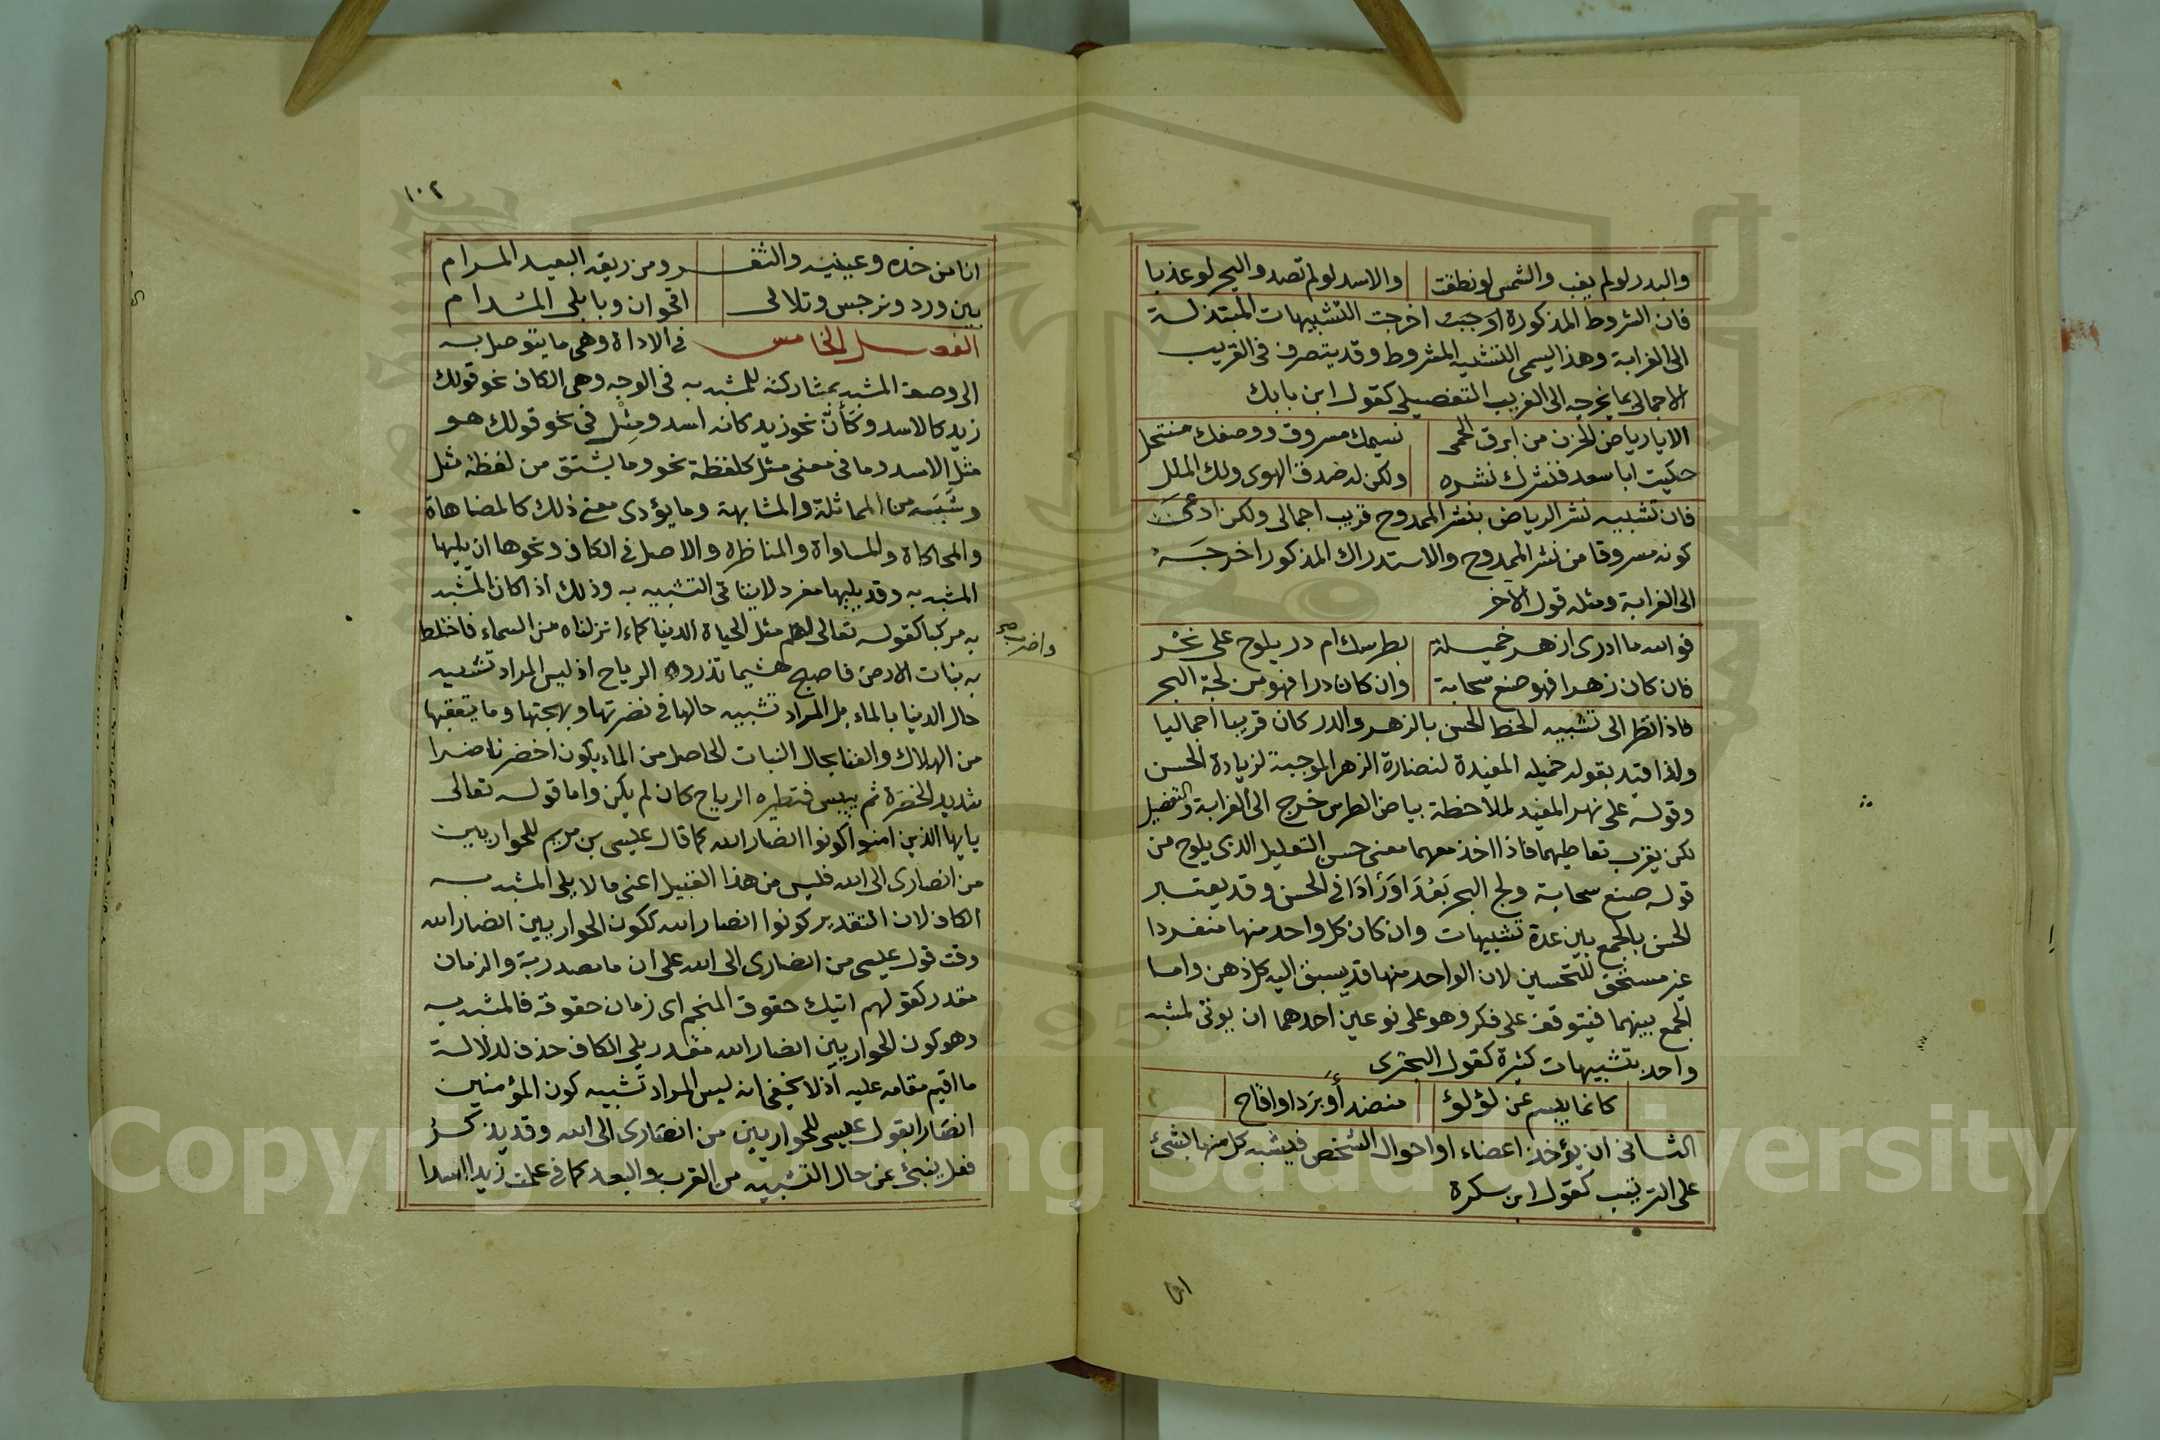 والبدر لو لم يغب والشمس لو نطقت والاسد لو لم تصد والبحر لو عذبا
فان الشروط المذكورة اوجبت اخرجت التشبيهات المبتذلة
الى الغرابة وهذا يسمى التشبيه المشروط وقد يتصرف في القريب
الاجمالي بما يخرجه الى الغريب التفصيلي كقول ابن بابك
الا يا رياض الحزن من ابرق الحمى نسيمك مسروق ووصفك منتحل
حكيت ابا سعد فنشرك نشره ولكن له صدق الهوى ولك الملل
فان تشبيه نشر الرياض بنشر الممدوح قريب اجمالي ولكن ادعى
كونه مسروقا من نشر الممدوح والاستدراك المذكور اخرجه
الى الغرابة ومثله قول الاخر
فوالله ما ادرى ازهر خميلة بطرسك ام در يلوح على نحر
فان كان زهرا فهو صنع سحابة وان كان درا فهو من لجة البحر
فاذا نظر الى تشبيه الخط الحسن بالزهر والدر كان قريبا اجماليا
ولذا قيد بقوله خميله المفيدة لنضارة الزهر الموجبة لزيادة الحسن
وقوله على نهر المفيد لملاحظة بياض الطرس خرج الى الغرابة والتفضيل
لكن يقرب تعاطيهما فاذا اخذ معهما معنى حسن التعليل الذى يلوح من
قوله صنع سحابة ولج البحر بَعُدَ اوزادا في الحسن وقد يعتبر
الحسن بالجمع بين عدة تشبيهات وان كان كل واحد منها منفردا
غير مستحق للتحسين لان الواحد منها قد يسبق اليه كل ذهن واما
الجمع بينهما فيتوقف على فكر وهو على نوعين احدهما ان يوتى لمشبه
واحد بتشبيهات كثيرة كقول البحترى
كانما يبسم عن لؤلؤ منضد أو بَرَد او اقاح
الثانى ان يؤخذ اعضاء او احوال الشخص فيشبه كل منها بالشئ
على الترتيب كقول ابن سكرة
١٠٢
انا من خده وعينيه والثغر ومن ريقه البعيد المرام
بين ورد ونرجس وتلالى اقحوان وبابلى المدام
الفصل الخامس في الاداة وهى ما يتوصل به
الى وصف المشبه بمشاركته للمشبه به في الوجه وهى الكاف نحو قولك
زيد كالاسد وكَأَنَّ نحو زيد كانه اسد ومِثْل في نحو قولك هو
مثل الاسد وما في معنى مثل كلفظة نحو وما يشتق من لفظة مثل
وشَبَه من المماثلة والمشابهة وما يؤدى معنى ذلك كالمضاهاة
والمحاكاة والمساواة والمناظره والاصل في الكاف ونحوها ان يليها
المشبه به وقد يليها مفرد لايتاتى التشبيه به وذلك اذا كان المشبه
به مركبا كقوله تعالى لهم مثل الحياة الدنيا كماء انزلناه من السماء فاختلط
واضرب
به نبات الارض فاصبح هشيما تذروه الرياح اذ ليس المراد تشبيه
حال الدنيا بالماء بل المراد تشبيه حالها في نضرتها وبهجتها وما يتعقبها
من الهلاك والفنا بحال النبات الحاصل من الماء يكون اخضر ناضرا
شديد الخضرة ثم ييبس فتطيره الرياح كان لم يكن واما قوله تعالى
يايها الذين امنوا كونوا انصار الله كما قال عيسى بن مريم للحواريين
من انصارى الى الله فليس من هذا القبيل اعنى ما لا يلى المشبه به
الكاف لان التقدير كونوا انصار الله ككون الحواريين انصار الله
وقت قول عيسى من انصارى الى الله على ان ما مصدرية والزمان
مقدر كقولهم اتيك خفوق النجم اى زمان خفوقه فالمشبه به
وهو كون الحواريين انصار الله مقدر يلى الكاف حذف لدلالة
ما اقيم مقامه عليه اذ لا يخفى انه ليس المراد تشبيه كون المؤمنين
انصارا بقول عيسى للحواريين من انصارى الى الله وقد يذكر
فعل ينبئ عن حال التشبيه من القرب والبعد كما في علمت زيدا اسدا
Copyright © King Saud University
1957